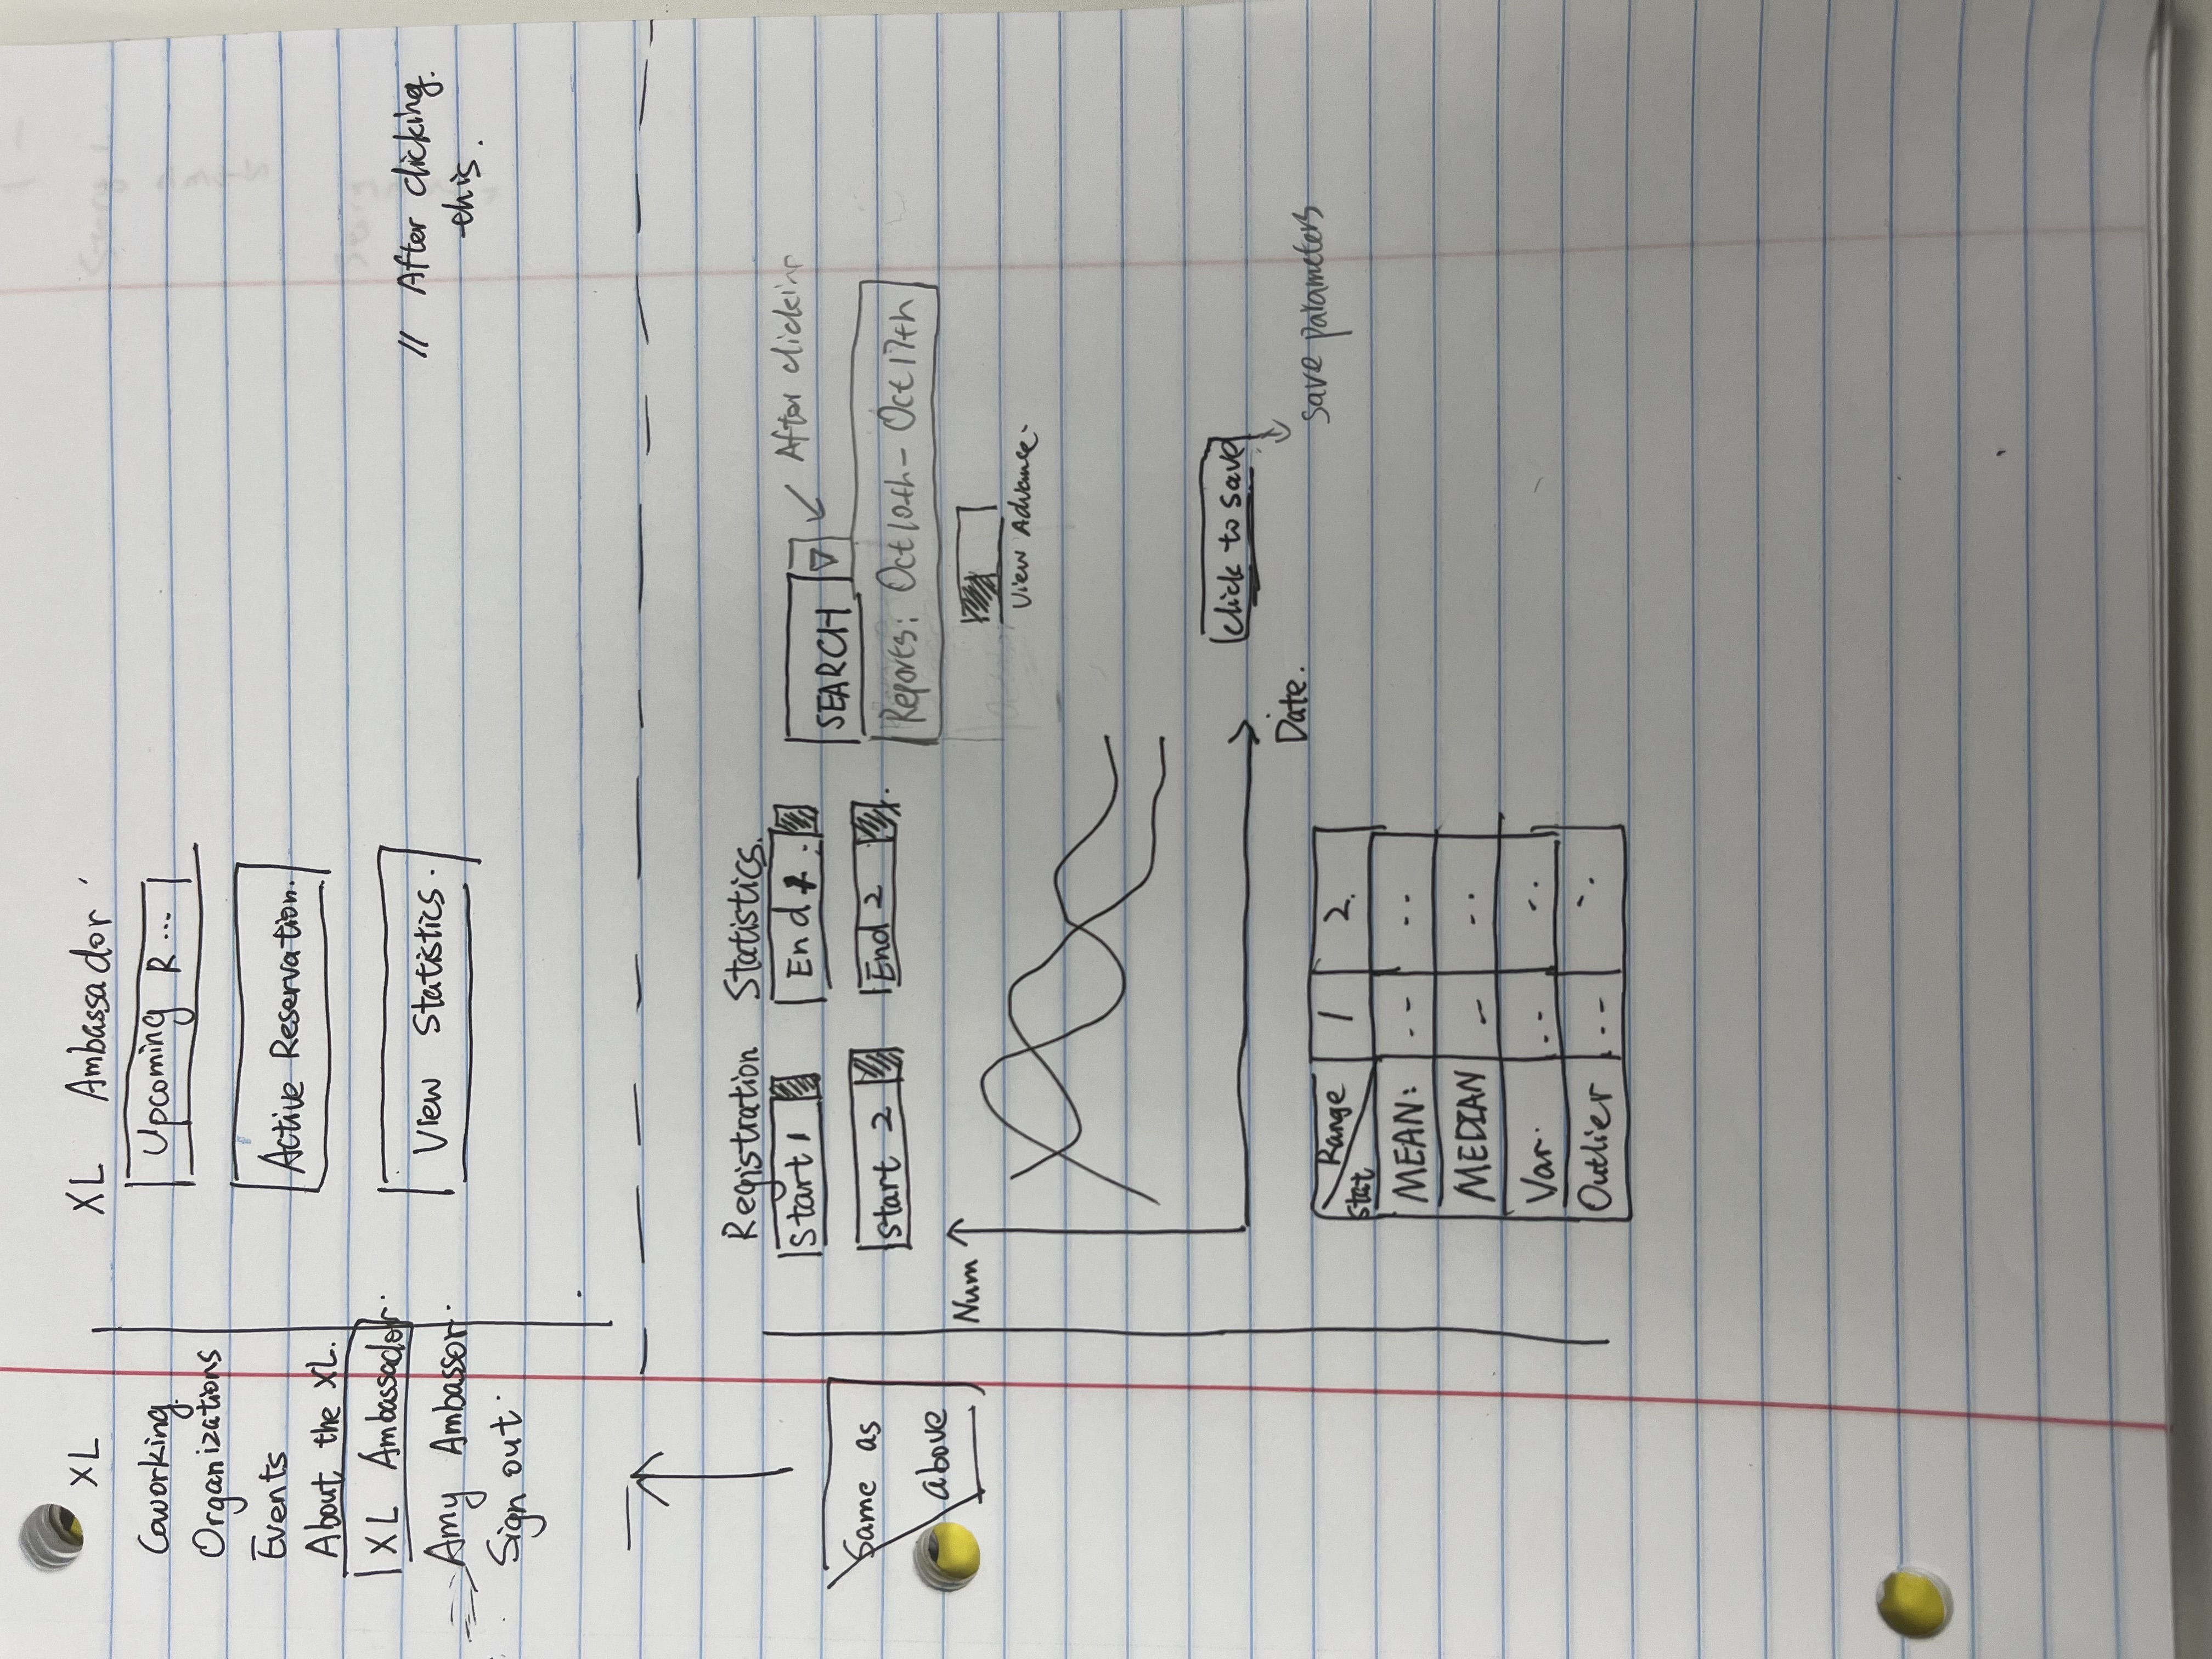 XL
Coworking
Organizations
Events
About the XL.
XL Ambassador.
Amy Ambassor.
Sign out.
XL Ambassador
Upcoming R ...
Active Reservation.
View Statistics.
// After clicking
this.
Same as
above
Registration Statistics.
Start 1
End 1.
Start 2
End 2
SEARCH
After clickin
Reports: Oct 10th - Oct 17th
View Advance.
Num
Date.
click to save
save parameters
Range
Stat
1
2.
MEAN: -- --
MEDIAN - --
Var. -- --
Outlier -- --